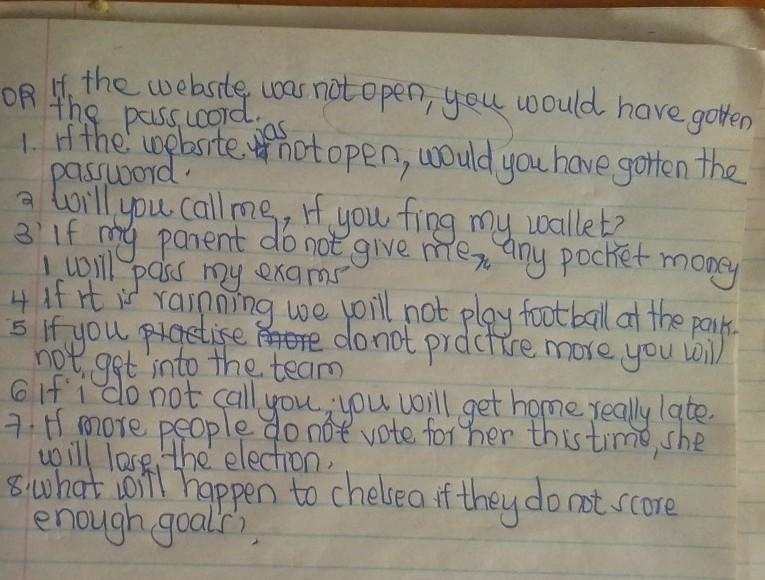 OR If the website was not open, you would have gotten
the password.
1. If the website was not open, would you have gotten the
password.
2 Will you call me, if you fing my wallet?
3 If my parent do not give me, any pocket money
I will pass my exams
4 If it is rainning we will not play football at the park.
5 If you practise more do not practise more you will
not get into the team
6 If i do not call you, you will get home really late.
7. If more people do not vote for her this time, she
will lose the election.
8. what will happen to chelsea if they do not score
enough goals?